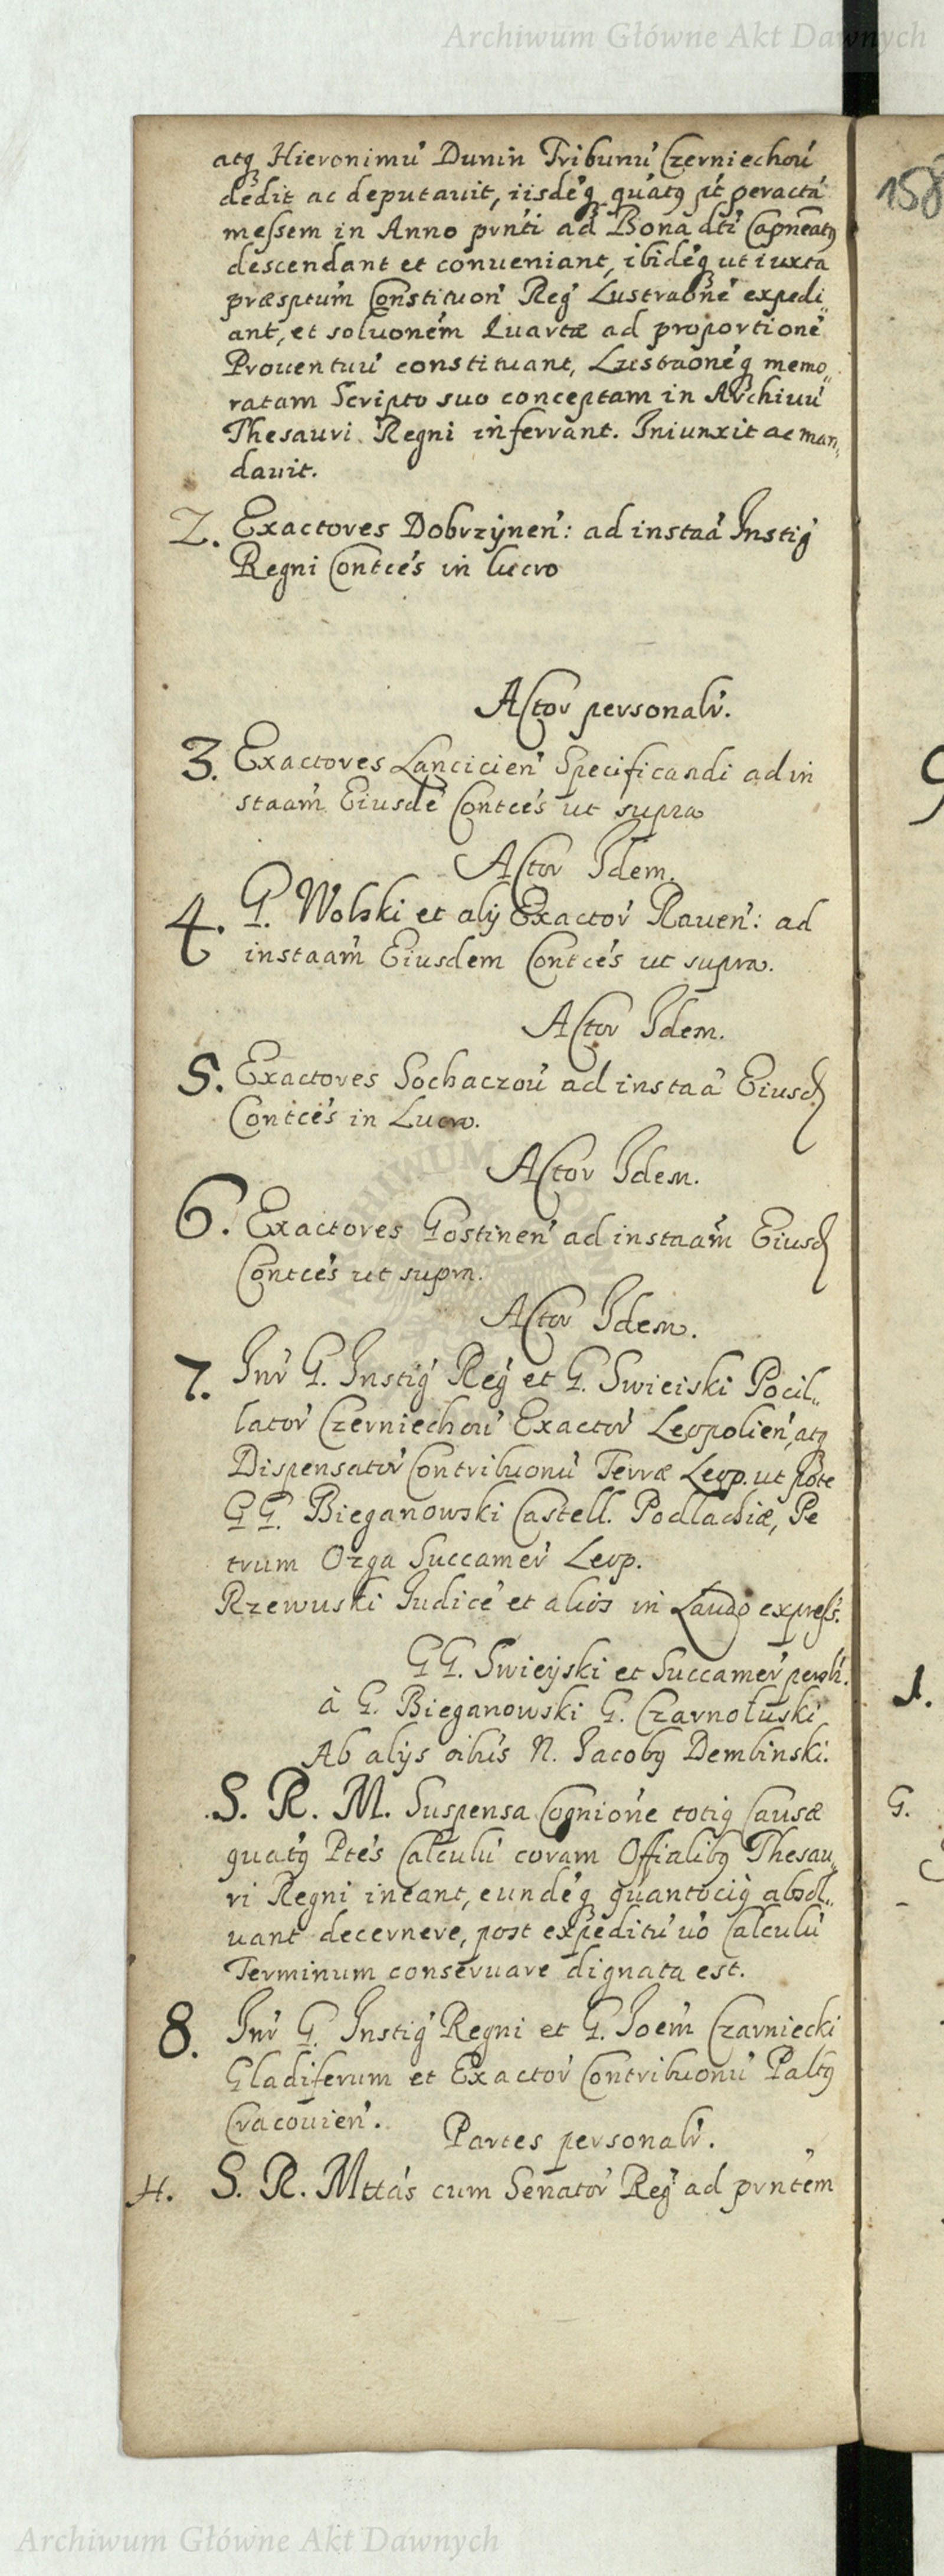 Archiwum Główne Akt Dawnych
atq Hieronimu' Dunin Tribunu' Czerniechou'
dedit ac deputauit, iisdéq quatq ut peracta'
messem in Anno pvnti ad Bona dti Capneatq
descendant et conueniant, ibidéq ut iuxta
præsptum Constituon' Reg' Lustraōne' expedi„
ant, et soluoném Quartæ ad proportione'
Prouentuu' constituant, Lustraonéq memo„
ratam Scripto suo conceptam in Archiuu'
Thesauri Regni inferrant. Iniunxit ac man„
dauit.
158
2. Exactores Dobrzÿnen': ad instaā Instig'
Regni Contcés in lucro
Actor personalr.
3. Exactores Lancicien' Specificandi ad in
staam̄ Eiusde' Contcés ut supra
Actor Idem.
4. G. Wolski et alij Exactor' Rauen': ad
instaam̄ Eiusdem Contcés ut supra.
Actor Idem.
5. Exactores Sochaczou' ad instaā Eiusd
Contcés in Lucro.
Actor Idem.
6. Exactores Gostinen' ad instaam̄ Eiusd
Contcés ut supra.
Actor Idem.
7. Inr' G. Instig' Reg' et G. Swieiski Pocil„
lator' Czerniechou' Exactor' Leopolien', atq
Dispensator' Contribuonu' Terræ Leop. ut póte
GG. Bieganowski Castell. Podlachiæ, Pe
trum Ozga Succamer' Leop.
Rzewuski Iudice' et alios in Laudo express.
GG. Swieÿski et Succamer' persli.
à G. Bieganowski G. Czarnołuski
Ab alijs oibús N. Iacobq Dembinski.
S. R. M. Suspensa Cognióne totiq Causæ
quatq Ptés Calculu' coram Offialibq Thesau„
ri Regni ineant, eundéq quantociq absol„
uant decernere, post expeditu' uo' Calculu'
Terminum conseruare dignata est.
8. Inr' G. Instig' Regni et G. Ioém Czarniecki
Gladiferum et Exactor' Contribuonu' Paltq
Cracouien'.
Partes personalr.
H. S. R. Mttás cum Senator' Reg' ad pvntém
1.
G.
Archiwum Główne Akt Dawnych